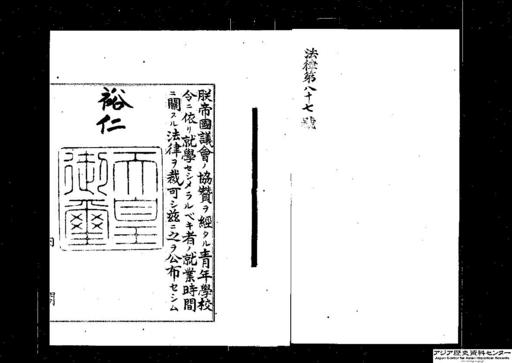 法律第八十七號
朕帝國議會ノ協贊ヲ經タル青年學校
令ニ依リ就學セシメラルベキ者ノ就業時間
ニ關スル法律ヲ裁可シ茲ニ之ヲ公布セシム
裕仁
天皇御璽
内閣
アジア歴史資料センター
Japan Center for Asian Historical Records